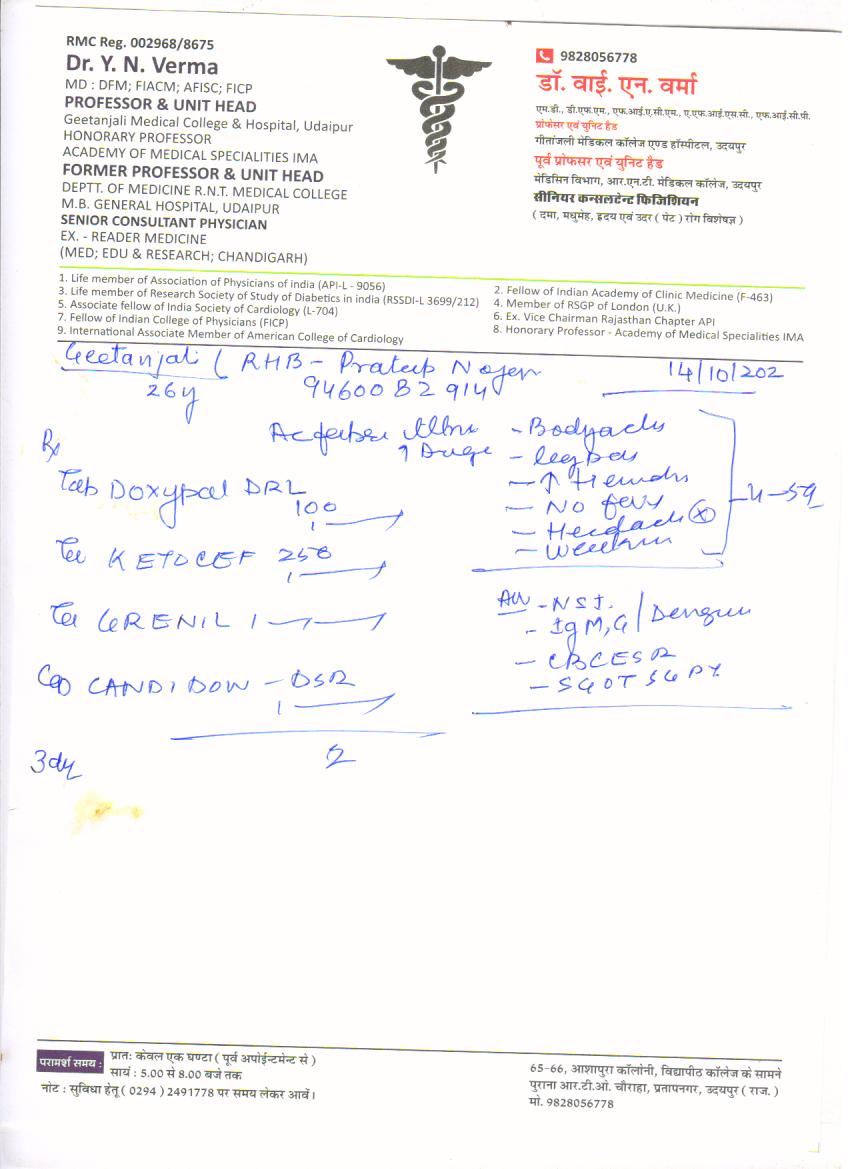 RMC Reg. 002968/8675
Dr. Y. N. Verma
MD : DFM; FIACM; AFISC; FICP
PROFESSOR & UNIT HEAD
Geetanjali Medical College & Hospital, Udaipur
HONORARY PROFESSOR
ACADEMY OF MEDICAL SPECIALITIES IMA
FORMER PROFESSOR & UNIT HEAD
DEPTT. OF MEDICINE R.N.T. MEDICAL COLLEGE
M.B. GENERAL HOSPITAL, UDAIPUR
SENIOR CONSULTANT PHYSICIAN
EX. - READER MEDICINE
(MED; EDU & RESEARCH; CHANDIGARH)
9828056778
डॉ. वाई. एन. वर्मा
एम.डी., डी.एफ.एम., एफ.आई.ए.सी.एम., ए.एफ.आई.एस.सी., एफ.आई.सी.पी.
प्रोफेसर एवं युनिट हैड
गीतांजली मेडिकल कॉलेज एण्ड हॉस्पीटल, उदयपुर
पूर्व प्रोफसर एवं युनिट हैड
मेडिसिन विभाग, आर.एन.टी. मेडिकल कॉलेज, उदयपुर
सीनियर कन्सलटेन्ट फिजिशियन
( दमा, मधुमेह, हृदय एवं उदर ( पेट ) रोग विशेषज्ञ )
1. Life member of Association of Physicians of india (API-L - 9056)
2. Fellow of Indian Academy of Clinic Medicine (F-463)
3. Life member of Research Society of Study of Diabetics in india (RSSDI-L 3699/212)
4. Member of RSGP of London (U.K.)
5. Associate fellow of India Society of Cardiology (L-704)
6. Ex. Vice Chairman Rajasthan Chapter API
7. Fellow of Indian College of Physicians (FICP)
8. Honorary Professor - Academy of Medical Specialities IMA
9. International Associate Member of American College of Cardiology
Geetanjali ( RHB - Pratap 14/10/202
26y 9460082914
Rx
- Bodyache
- No fever
- Headache
Tab DOXYPAL DRL
100
1
KETOCEF 250
1
1
- NS1.
- IgM, G / Dengue
- CBC ESR
- SGOT SGPT
Cap CANDIDOW - DSR
1
3dy 2
परामर्श समय : प्रातः केवल एक घण्टा ( पूर्व अपोईन्टमेन्ट से )
सायं : 5.00 से 8.00 बजे तक
नोट : सुविधा हेतू ( 0294 ) 2491778 पर समय लेकर आवें।
65-66, आशापुरा कॉलोनी, विद्यापीठ कॉलेज के सामने
पुराना आर.टी.ओ. चौराहा, प्रतापनगर, उदयपुर ( राज. )
मो. 9828056778